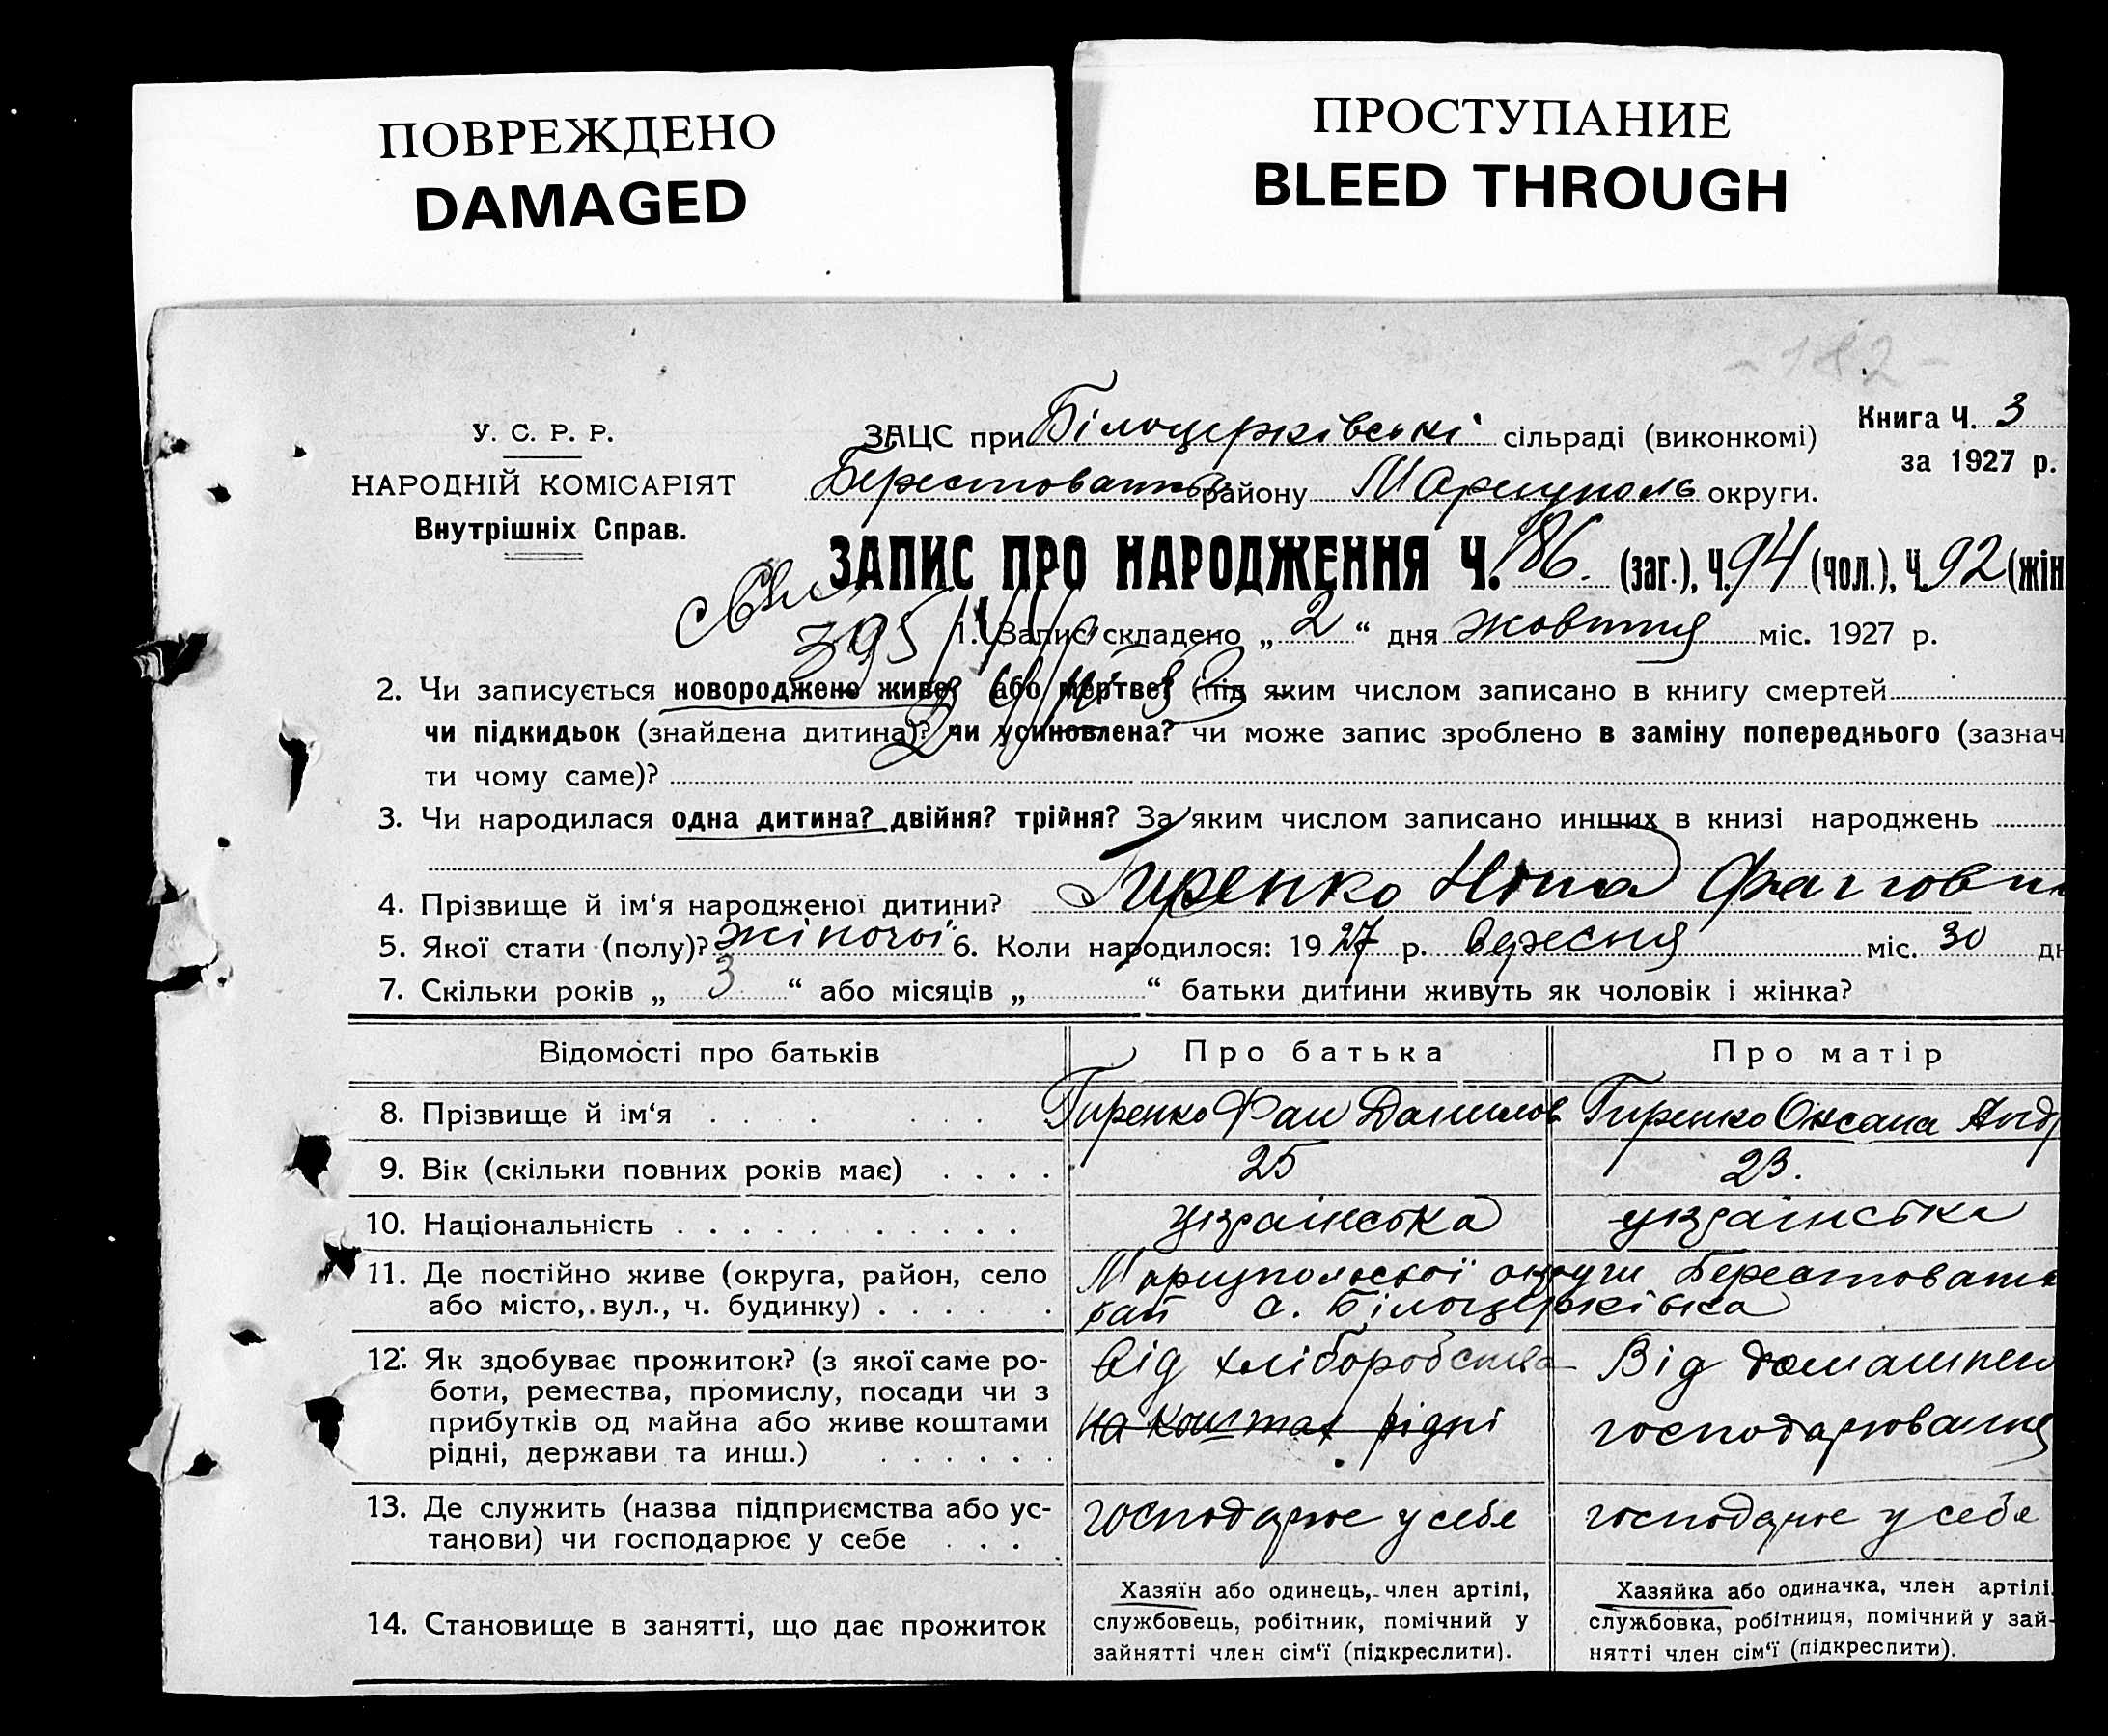 ПОВРЕЖДЕНО
DAMAGED
ПРОСТУПАНИЕ
BLEED THROUGH
- 182 -
У. С. Р. Р.
НАРОДНІЙ КОМІСАРІЯТ
Внутрішніх Справ.
ЗАЦС при Білоцерківські сільраді (виконкомі)
Книга Ч. 3
за 1927 р.
району Маріуполь округи.
ЗАПИС ПРО НАРОДЖЕННЯ Ч. 186. (заг.), Ч. 94 (чол.), Ч. 92 (жін
395
1. Запис складено „ 2 “ дня жовтня міс. 1927 р.
2. Чи записується новороджене живе? або мертве? (під яким числом записано в книгу смертей
чи підкидьок (знайдена дитина)? чи усиновлена? чи може запис зроблено в заміну попереднього (зазнач
ти чому саме)?
3. Чи народилася одна дитина? двійня? трійня? За яким числом записано инших в книзі народжень
4. Прізвище й ім‘я народженої дитини? Гиренко Ніна
5. Якої стати (полу)? жіночої 6. Коли народилося: 1927 р. вересня міс. 30 дн
7. Скільки років „ 3 “ або місяців „ “ батьки дитини живуть як чоловік і жінка?
Відомості про батьків Про батька Про матір
8. Прізвище й ім‘я Гиренко Фан Данилов Гиренко Оксана Андр
9. Вік (скільки повних років має) 25 23.
10. Національність українська українська
11. Де постійно живе (округа, район, село Маріупольської округи
або місто, вул., ч. будинку) рай с. Білоцерківка
12. Як здобуває прожиток? (з якої саме ро- від хліборобства Від домашнего
боти, ремества, промислу, посади чи з
прибутків од майна або живе коштами на коштах рідні господарювання
рідні, держави та инш.)
13. Де служить (назва підприємства або ус- господарює у себе господарює у себе
танови) чи господарює у себе
14. Становище в занятті, що дає прожиток
Хазяїн або одинець, член артілі,
службовець, робітник, помічний у
зайнятті член сім‘ї (підкреслити).
Хазяйка або одиначка, член артілі,
службовка, робітниця, помічний у зай-
нятті член сім‘ї (підкреслити).